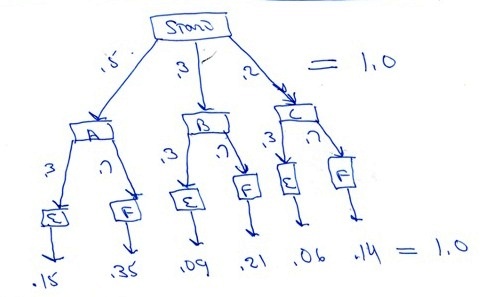 Start
.5 .3 .2 = 1.0
A B C
.3 .7 .3 .7 .3 .7
E F E F E F
.15 .35 .09 .21 .06 .14 = 1.0